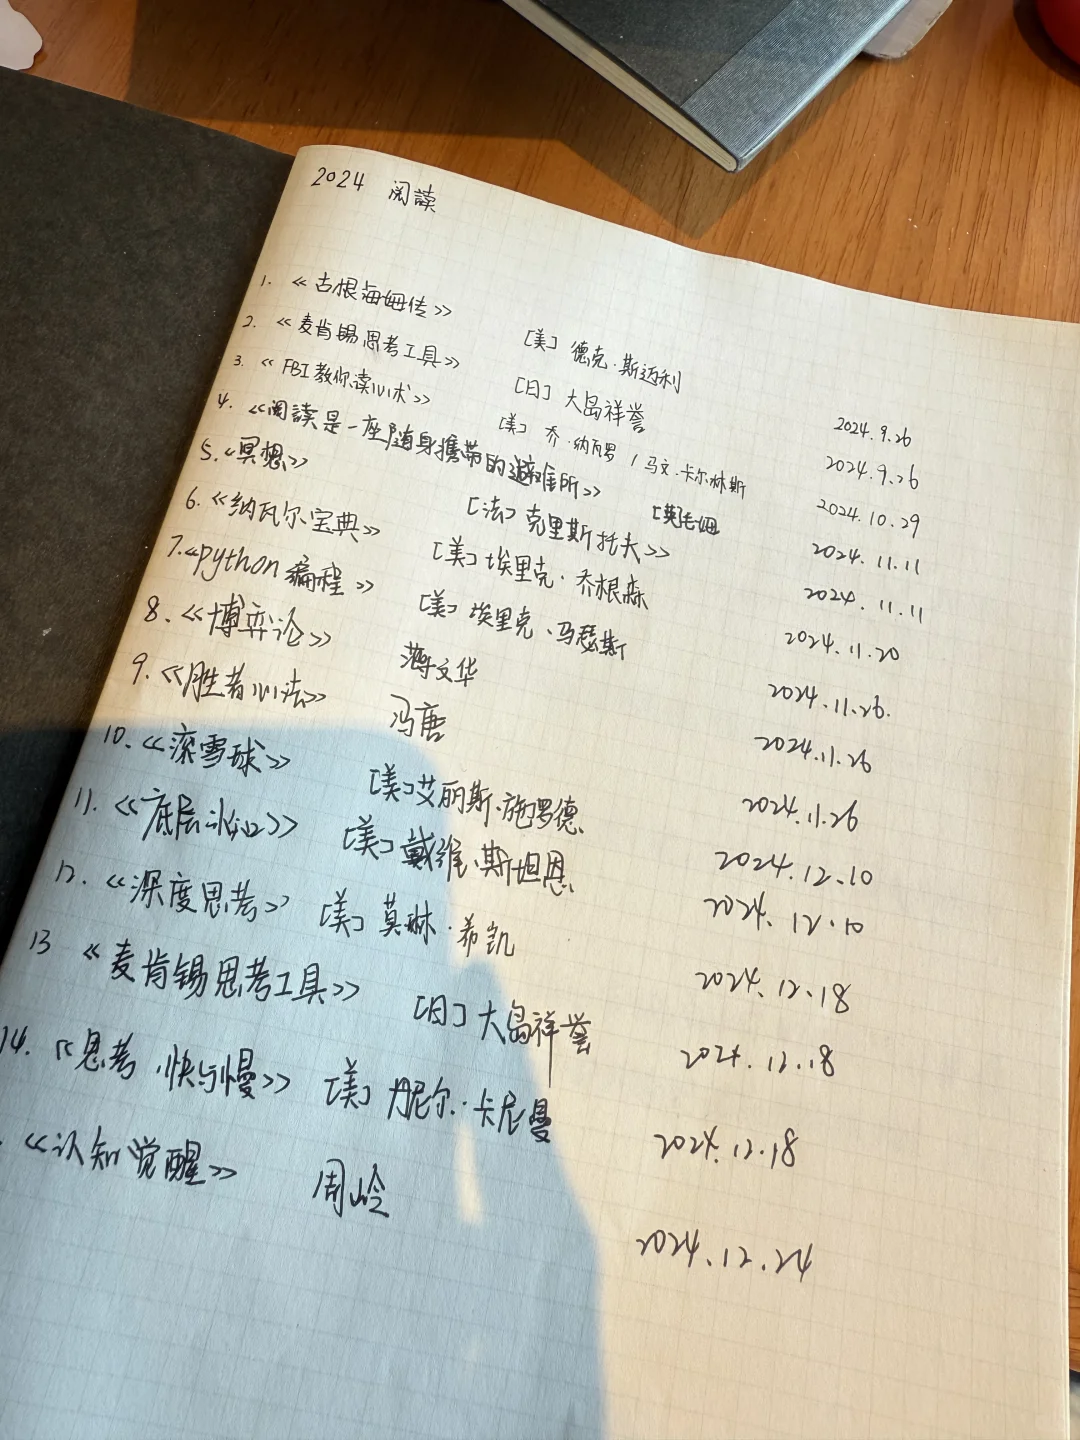 2024 阅读
1. 《古根海姆传》 [美] 德克·斯迈利 2024.9.26
2. 《麦肯锡思考工具》 [日] 大岛祥誉 2024.9.26
3. 《FBI教你读心术》 [美] 乔·纳瓦罗 / 马文·卡尔林斯 2024.10.29
4. 《阅读是一座随身携带的避难所》 [英]毛姆 2024.11.11
5. 《冥想》 [法] 克里斯托夫》 2024.11.11
6. 《纳瓦尔宝典》 [美] 埃里克·乔根森 2024.11.20
7. 《python编程》 [美] 埃里克·马瑟斯 2024.11.26.
8. 《博弈论》 蒋文华 2024.11.26
9. 《胜者心法》 冯唐 2024.11.26
10. 《滚雪球》 [美]艾丽斯·施罗德 2024.12.10
11. 《底层》 [美] 戴维·斯坦恩 2024.12.10
12. 《深度思考》 [美] 莫琳·希凯 2024.12.18
13 《麦肯锡思考工具》 [日] 大岛祥誉 2024.12.18
14. 《思考 快与慢》 [美] 丹尼尔·卡尼曼 2024.12.18
《认知觉醒》 周岭 2024.12.24